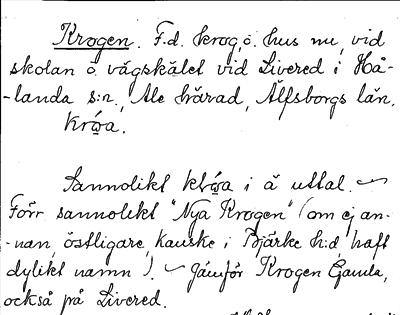 Krogen. F.d. krog, o. hus nu, vid
skolan o. vägskälet vid Livered i Hå-
-landa s:n, Ale härad, Älfsborgs län.
Sannolikt i å uttal.
Förr sannolikt "Nya Krogen" (om ej an-
-nan, östligare, kanske i Bjärke h:d, haft
dylikt namn). Jämför Krogen Gamla,
också på Livered.